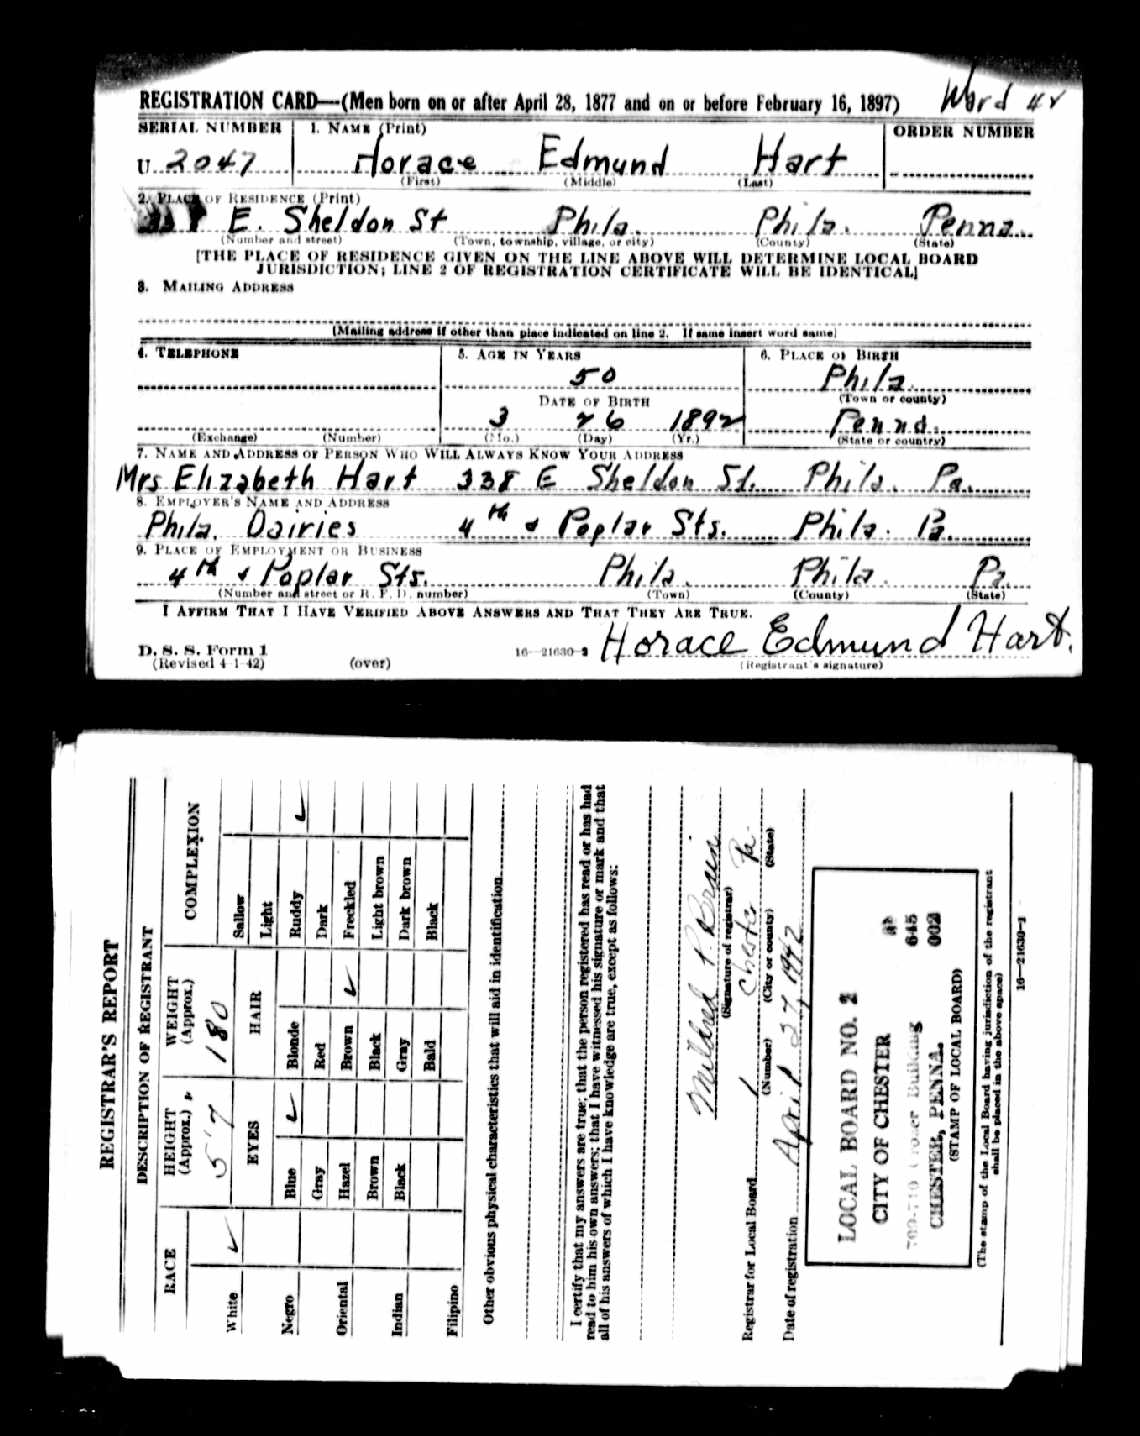 REGISTRATION CARD—(Men born on or after April 28, 1877 and on or before February 16, 1897) Ward 42
SERIAL NUMBER 1. NAME (Print) ORDER NUMBER
U 2047 Horace Edmund Hart
(First) (Middle) (Last)
2. PLACE OF RESIDENCE (Print)
E. Sheldon St Phila. Phila. Penna.
(Number and street) (Town, township, village, or city) (County) (State)
[THE PLACE OF RESIDENCE GIVEN ON THE LINE ABOVE WILL DETERMINE LOCAL BOARD
JURISDICTION; LINE 2 OF REGISTRATION CERTIFICATE WILL BE IDENTICAL]
3. MAILING ADDRESS
[Mailing address if other than place indicated on line 2. If same insert word same]
4. TELEPHONE 5. AGE IN YEARS 6. PLACE OF BIRTH
50 Phila.
DATE OF BIRTH (Town or county)
3 26 1892 Penna.
(Exchange) (Number) (Mo.) (Day) (Yr.) (State or country)
7. NAME AND ADDRESS OF PERSON WHO WILL ALWAYS KNOW YOUR ADDRESS
Mrs Elizabeth Hart 338 E Sheldon St. Phila. Pa.
8. EMPLOYER'S NAME AND ADDRESS
Phila. Dairies 4th & Poplar Sts. Phila. Pa.
9. PLACE OF EMPLOYMENT OR BUSINESS
4th & Poplar Sts. Phila. Phila. Pa.
(Number and street or R. F. D. number) (Town) (County) (State)
I AFFIRM THAT I HAVE VERIFIED ABOVE ANSWERS AND THAT THEY ARE TRUE.
Horace Edmund Hart.
D. S. S. Form 1
(Revised 4-1-42) (over) 16—21630-2 (Registrant's signature)
REGISTRAR'S REPORT
DESCRIPTION OF REGISTRANT
RACE HEIGHT (Approx.) WEIGHT (Approx.) COMPLEXION
5'7 180
White ✓ EYES HAIR Sallow
Light
Negro Blue ✓ Blonde Ruddy ✓
Gray Red Dark
Oriental Hazel Brown ✓ Freckled
Brown Black Light brown
Indian Black Gray Dark brown
Bald Black
Filipino
Other obvious physical characteristics that will aid in identification
I certify that my answers are true; that the person registered has read or has had
read to him his own answers; that I have witnessed his signature or mark and that
all of his answers of which I have knowledge are true, except as follows:
Mildred P.
(Signature of registrar)
Registrar for Local Board 1 Chester Pa.
(Number) (City or county) (State)
Date of registration April 27, 1942
LOCAL BOARD NO. 2
CITY OF CHESTER 645
Building 002
CHESTER, PENNA.
(STAMP OF LOCAL BOARD)
(The stamp of the Local Board having jurisdiction of the registrant
shall be placed in the above space)
16—21630-1